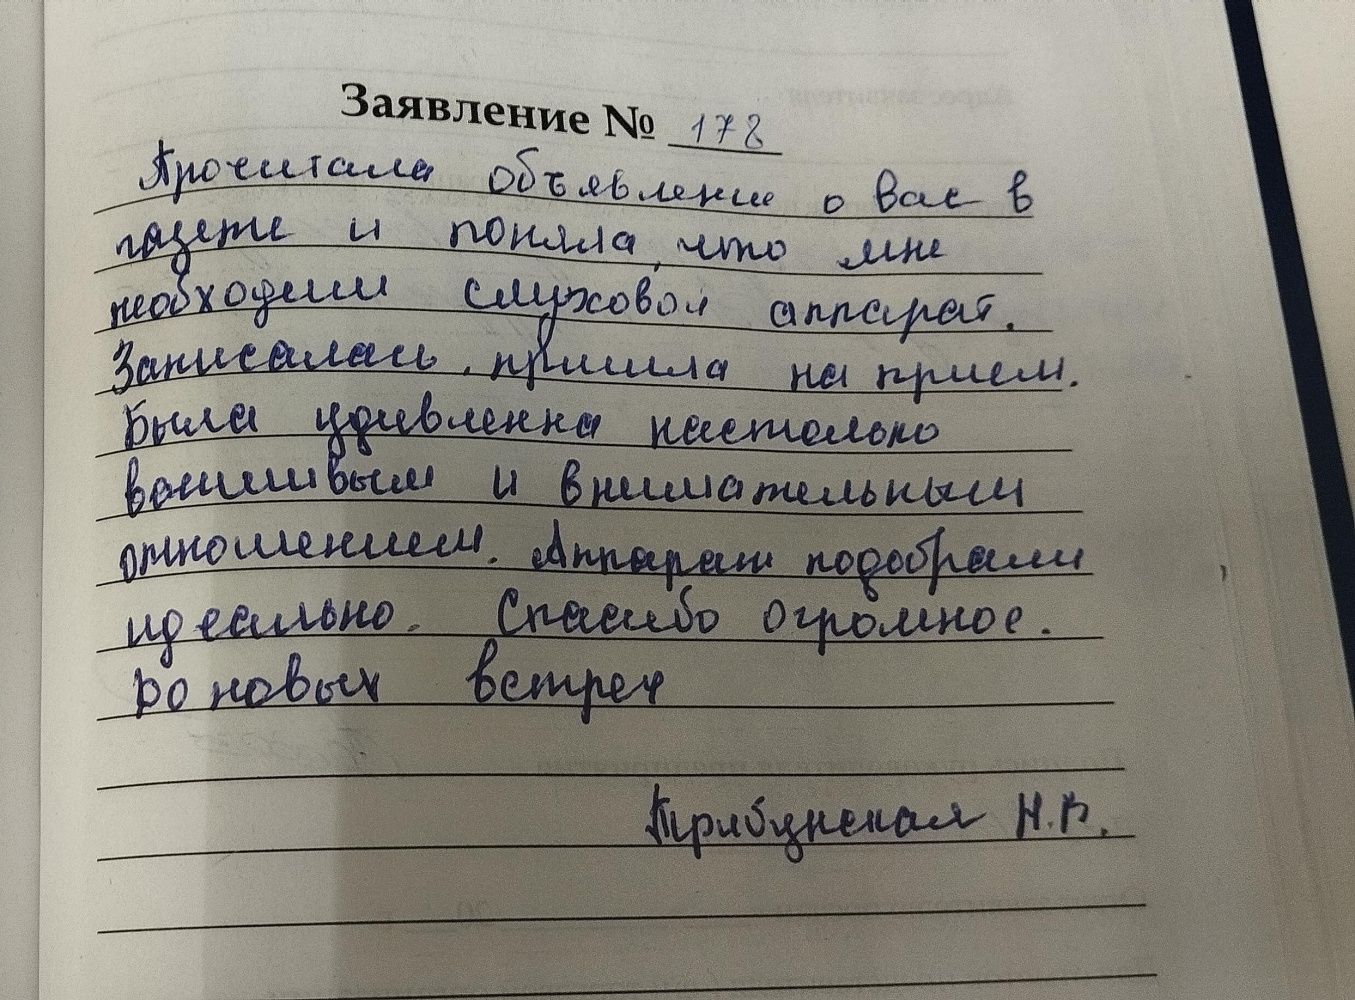 Заявление № 178
Прочитала объявление о вас в
газете и поняла, что мне
необходим слуховой аппарат.
Записалась, пришла на прием.
Была удивленна настолько
вежливым и внимательным
отношением. Аппарат подобрали
идеально. Спасибо огромное.
До новых встреч
Трибунская Н.В.